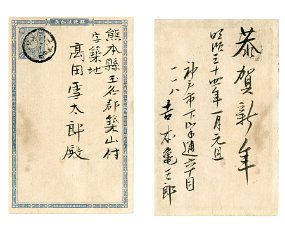 熊本縣玉名郡築山村
字築地
高田雪太郎殿
恭賀新年
明治三十四年一月元旦
神戸市下山手通六丁目
一一八
吉本亀三郎